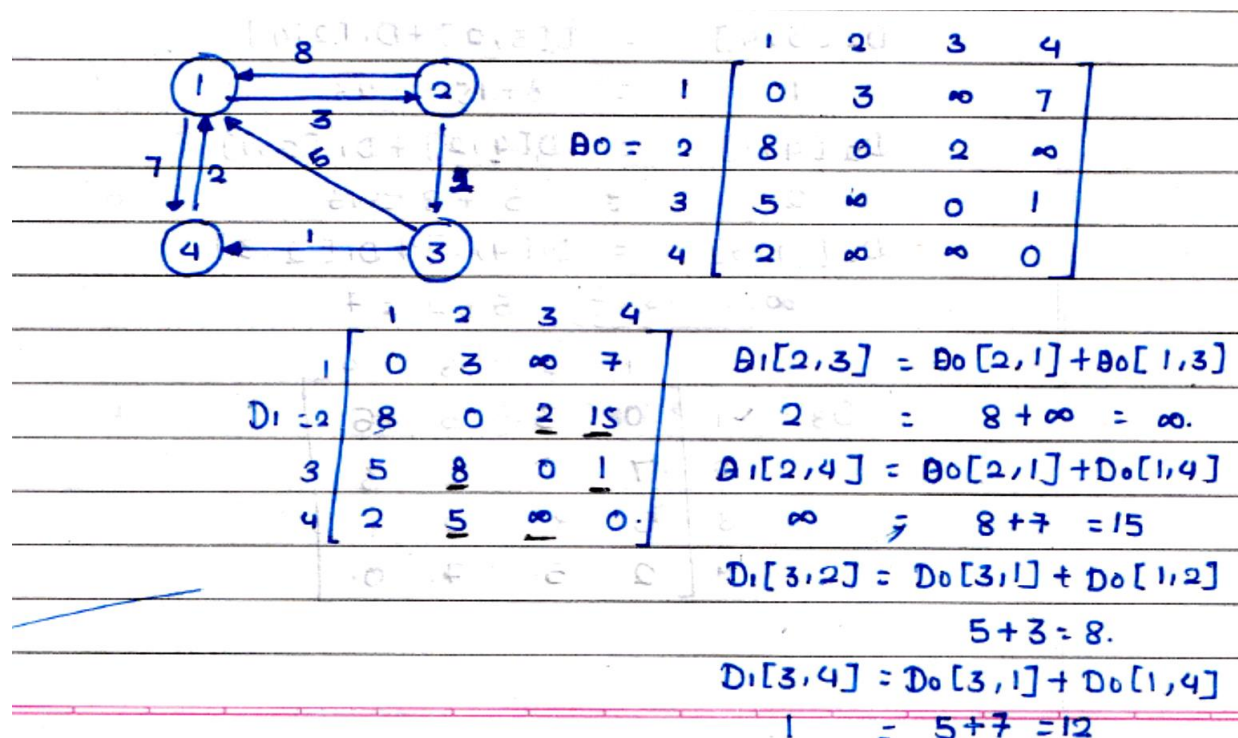 8
1 2
3
7 2 5 2
1
4 3
1 2 3 4
1 0 3 ∞ 7
D0 = 2 8 0 2 ∞
3 5 ∞ 0 1
4 2 ∞ ∞ 0
1 2 3 4
1 0 3 ∞ 7
D1 = 2 8 0 2 15
3 5 8 0 1
4 2 5 ∞ 0.
D1[2,3] = D0[2,1]+D0[1,3]
2 = 8 + ∞ = ∞.
D1[2,4] = D0[2,1]+D0[1,4]
∞ = 8+7 =15
D1[3,2] = D0[3,1] + D0[1,2]
5+3=8.
D1[3,4] = D0[3,1]+ D0[1,4]
1 = 5+7 =12